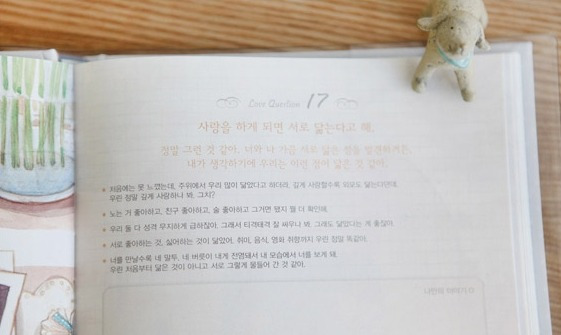 Love Question 17
사랑을 하게 되면 서로 닮는다고 해.
정말 그런 것 같아. 너와 나 가끔 서로 닮은 점을 발견하거든.
내가 생각하기에 우리는 이런 점이 닮은 것 같아.
처음에는 못 느꼈는데, 주위에서 우리 많이 닮았다고 하더라. 깊게 사랑할수록 외모도 닮는다던데,
우린 정말 깊게 사랑하나 봐. 그치?
노는 거 좋아하고, 친구 좋아하고, 술 좋아하고 그거면 됐지 뭘 더 확인해.
우리 둘 다 성격 무지하게 급하잖아. 그래서 티격태격 잘 싸우나 봐. 그래도 닮았다는 게 좋잖아.
서로 좋아하는 것, 싫어하는 것이 닮았어. 취미, 음식, 영화 취향까지 우린 정말 똑같아.
너를 만날수록 네 말투, 네 버릇이 내게 전염돼서 내 모습에서 너를 보게 돼.
우린 처음부터 닮은 것이 아니고 서로 그렇게 물들어 간 것 같아.
나만의 이야기